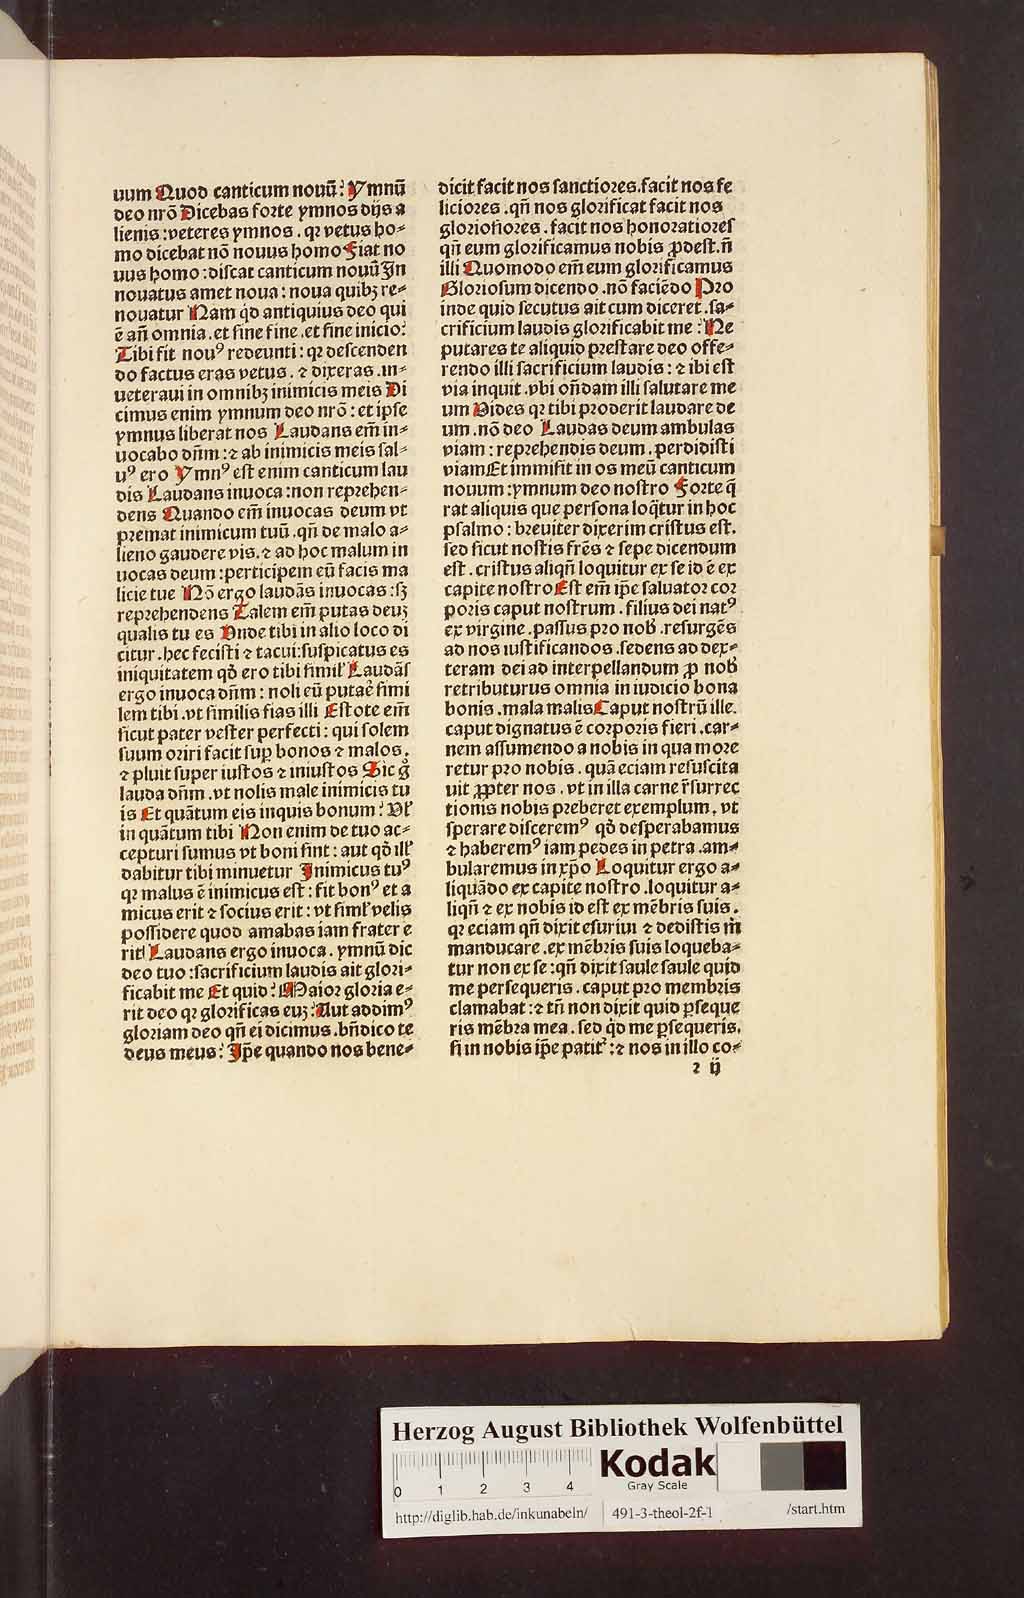 uum Quod canticum nouū: Ymnū
deo nrō Dicebas forte ymnos dijs a
lienis: veteres ymnos. qꝛ vetus ho⸗
mo dicebat nō nouus homo Fiat no
uus homo: discat canticum nouū In
nouatus amet noua: noua quibꝫ re⸗
nouatur Nam qd̓ antiquius deo qui
ē añ omnia. et sine fine. et sine inicio:
Tibi fit nouꝰ redeunti: qꝛ descenden
do factus eras vetus. ⁊ dixeras. in⸗
ueteraui in omnibꝫ inimicis meis Di
cimus enim ymnum deo nrō: et ipse
ymnus liberat nos Laudans em̄ in⸗
uocabo dn̄m: ⁊ ab inimicis meis sal⸗
uꝰ ero Ymnꝰ est enim canticum lau
dis Laudans inuoca: non reprehen⸗
dens Quando em̄ inuocas deum vt
premat inimicum tuū. qn̄ de malo a⸗
lieno gaudere vis. ⁊ ad hoc malum in
uocas deum: perticipem eū facis ma
licie tue Nō ergo laudās inuocas: sꝫ
reprehendens Talem em̄ putas deuꝫ
qualis tu es Vnde tibi in alio loco di
citur. hec fecisti ⁊ tacui: suspicatus es
iniquitatem qd̓ ero tibi simil̓ Laudās
ergo inuoca dn̄m: noli eū putar̄e simi
lem tibi. vt similis fias illi Estote em̄
sicut pater vester perfecti: qui solem
suum oriri facit sup̱ bonos ⁊ malos.
⁊ pluit super iustos ⁊ iniustos Sic g̊
lauda dn̄m. vt nolis male inimicis tu
is Et quātum eis inquis bonum: Vl̓
in quātum tibi Non enim de tuo ac⸗
cepturi sumus vt boni sint: aut qd̓ ill̓
dabitur tibi minuetur Inimicus tuꝰ
qꝛ malus ē inimicus est: fit bonꝰ et a
micus erit ⁊ socius erit: vt siml̓ velis
possidere quod amabas iam frater e
rit Laudans ergo inuoca. ymnū dic
deo tuo: sacrificium laudis ait glori⸗
ficabit me Et quid: Maior gloria e⸗
rit deo qꝛ glorificas euꝫ: Aut addimꝰ
gloriam deo qn̄ ei dicimus. bn̄dico te
deus meus: Ip̄e quando nos bene⸗
dicit facit nos sanctiores. facit nos fe
liciores. qn̄ nos glorificat facit nos
gloriosiores. facit nos honoratiores
qn̄ eum glorificamus nobis ꝓdest. n̄
illi Quomodo em̄ eum glorificamus
Gloriosum dicendo. nō faciēdo Pro
inde quid secutus ait cum diceret. sa⸗
crificium laudis glorificabit me: Ne
putares te aliquid prestare deo offe⸗
rendo illi sacrificium laudis: ⁊ ibi est
via inquit. vbi on̄dam illi salutare me
um Vides qꝛ tibi proderit laudare de
um. nō deo Laudas deum ambulas
viam: reprehendis deum. perdidisti
viam Et immisit in os meū canticum
nouum: ymnum deo nostro Forte q̄
rat aliquis que persona loq̄tur in hoc
psalmo: breuiter dixerim cristus est.
sed sicut nostis frēs ⁊ sepe dicendum
est. cristus aliqn̄ loquitur ex se id ē ex
capite nostro Est em̄ ip̄e saluator cor
poris caput nostrum. filius dei natꝰ
ex virgine. passus pro nob̓. resurgēs
ad nos iustificandos. sedens ad dex⸗
teram dei ad interpellandum ꝓ nob̓
retributurus omnia in iudicio bona
bonis. mala malis Caput nostrū ille.
caput dignatus ē corporis fieri. car⸗
nem assumendo a nobis in qua more
retur pro nobis. quā eciam resuscita
uit ꝓpter nos. vt in illa carne r̄surrec
tionis nobis preberet exemplum. vt
sperare disceremꝰ qd̓ desperabamus
⁊ haberemꝰ iam pedes in petra. am⸗
bularemus in xp̄o Loquitur ergo a⸗
liquādo ex capite nostro. loquitur a⸗
liqn̄ ⁊ ex nobis id est ex mēbris suis.
qꝛ eciam qn̄ dixit esuriui ⁊ dedistis m̄
manducare. ex mēbris suis loqueba⸗
tur non ex se: qn̄ dixit saule saule quid
me persequeris. caput pro membris
clamabat: ⁊ tn̄ non dixit quid ꝑseque
ris mēbra mea. sed qd̓ me ꝑsequeris.
si in nobis ip̄e patit᷑: ⁊ nos in illo co⸗
2 ij
Herzog August Bibliothek Wolfenbüttel
0 1 2 3 4
Kodak
Gray Scale
http://diglib.hab.de/inkunabeln/ 491-3-theol-2f-1 /start.htm